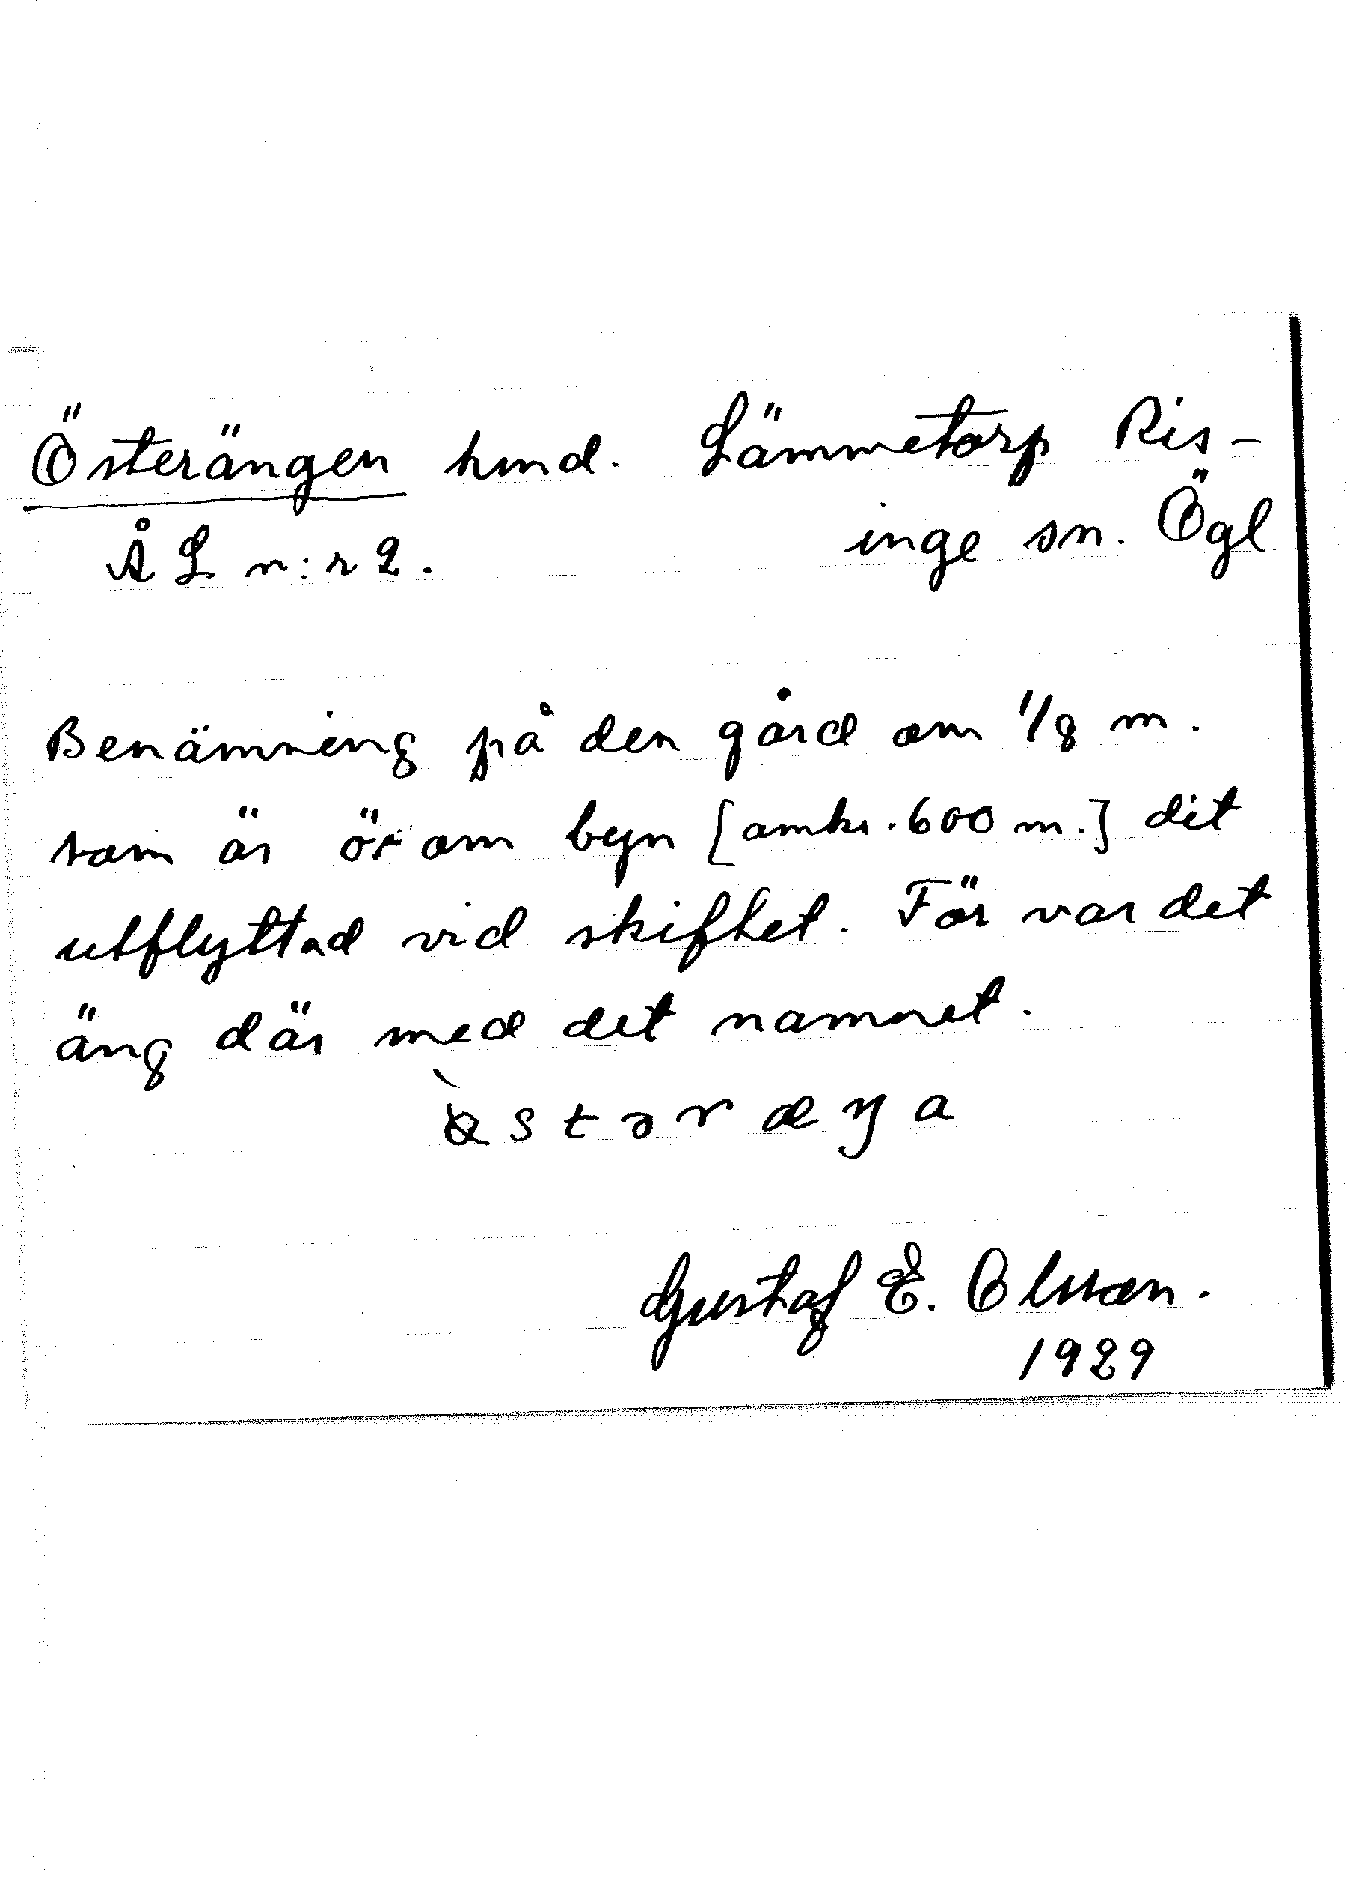 Österängen hmd. Lämmetorp Ris-
ÅL n:r 2. inge sn. Ögl
Benämning på den gård om 1/8 m.
som är öt om byn [omkr. 600 m.] dit
utflyttad vid skiftet. För var det
äng där med det namnet.
stəræŋa
Gustaf E. Olsson.
1929